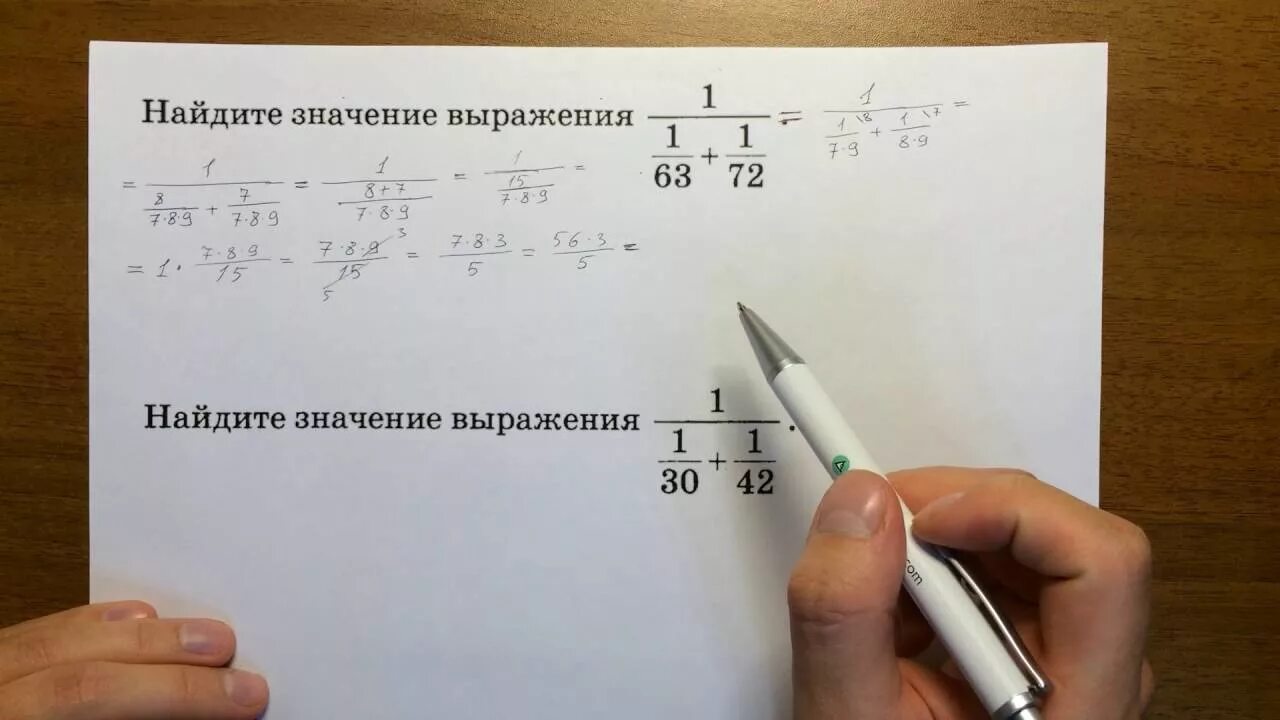 Найдите значение выражения 1/(1/63 + 1/72) = 1/(1\8/7·9 + 1\7/8·9) =
= 1/(8/7·8·9 + 7/7·8·9) = 1/((8+7)/7·8·9) = 1/(15/7·8·9) =
= 1 · 7·8·9/15 = 7·8·9 3/15 5 = 7·8·3/5 = 56·3/5 =
Найдите значение выражения 1/(1/30 + 1/42).
.com